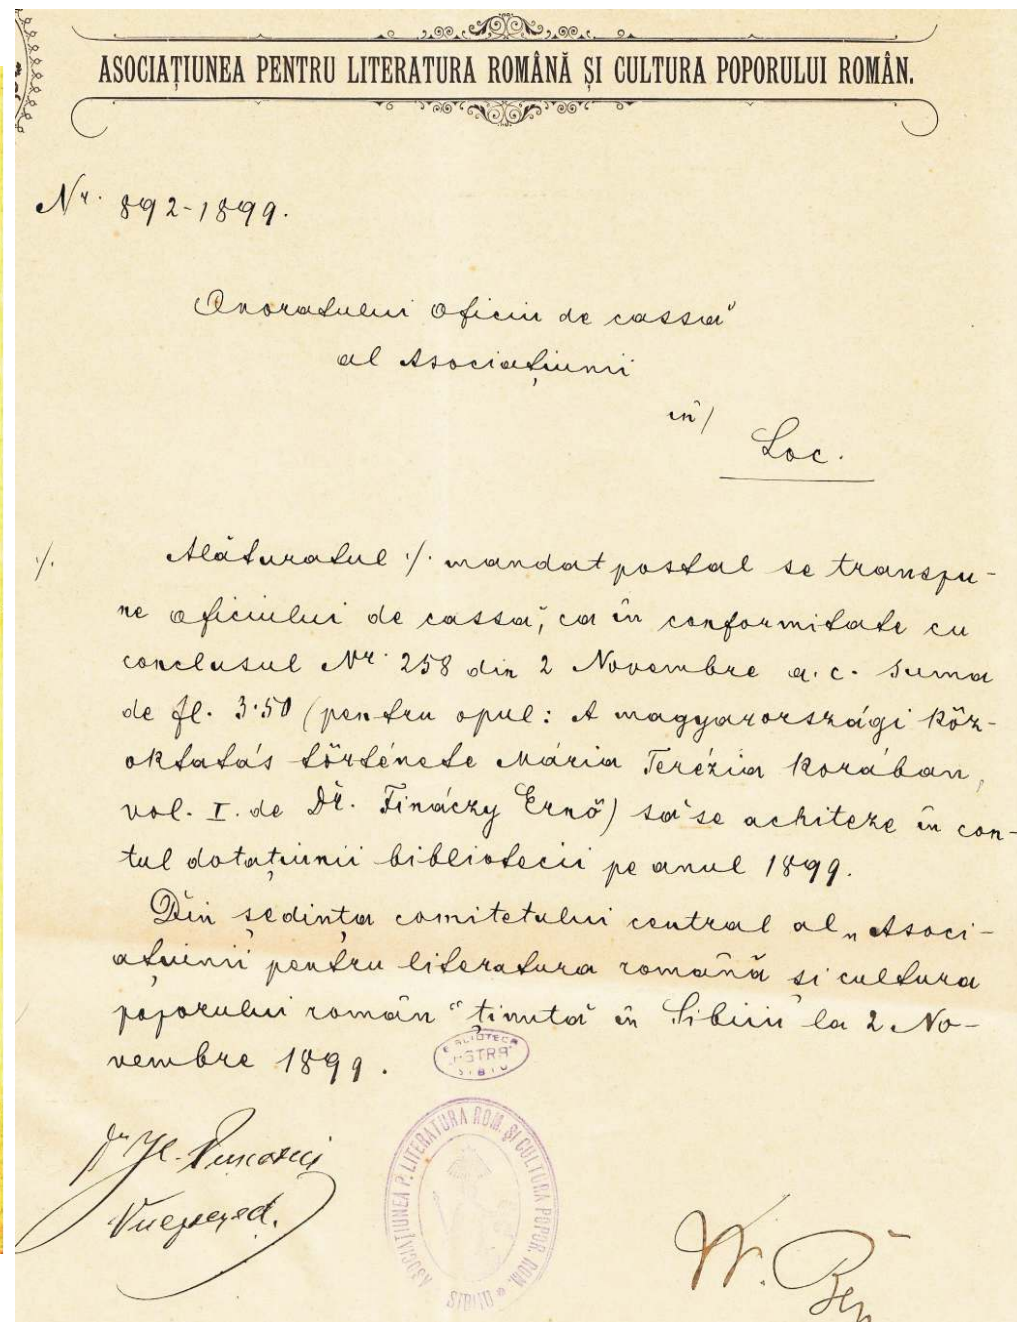 ASOCIAȚIUNEA PENTRU LITERATURA ROMÂNĂ ȘI CULTURA POPORULUI ROMÂN.
Nr. 892-1899.
Onoratului Oficiu de cassă
al Asociațiunii
în/
Loc.
·/. Alăturatul ·/. mandat postal se transpu-
ne oficiului de cassă, ca în conformitate cu
conclusul Nr. 258 din 2 Novembre a. c. suma
de fl. 3·50 (pentru opul: A magyarországi köz-
oktatás története Mária Terézia korában,
vol. I. de Dr. Fináczy Ernő) să se achiteze în con-
tul dotațiunii bibliotecii pe anul 1899.
Din ședința comitetului central al „Asoci-
ațiunii pentru literatura română si cultura
poporului român“ ținută în Sibiiu la 2 No-
vembre 1899.
BIBLIOTECA
"ASTRA"
SIBIU
ASOCIAȚIUNEA P. LITERATURA ROM. ȘI CULTURA POPOR. ROM.
SIBIIU
Dr Il. Pușcariu
Vicepreșed.